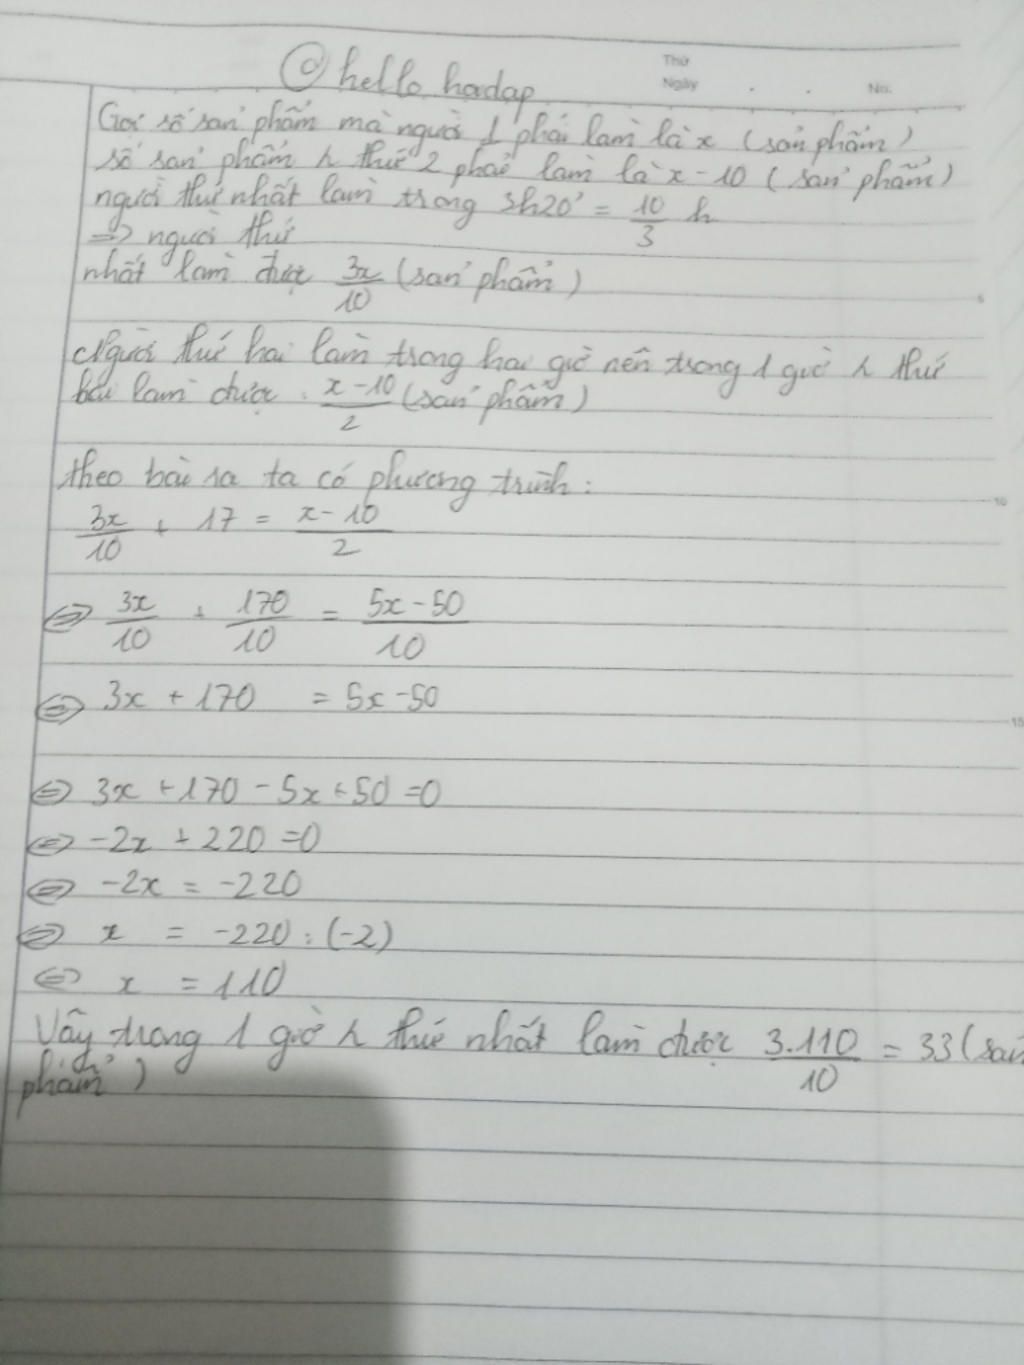 @ hello hoidap
Thứ
Ngày . . No.
Gọi số sản phẩm mà người 1 phải làm là x (sản phẩm)
số sản phẩm n thứ 2 phải làm là x-10 (sản phẩm)
người thứ nhất làm trong 3h20' = 10/3 h
=> người thứ
nhất làm được 3x/10 (sản phẩm)
Người thứ hai làm trong hai giờ nên trong 1 giờ n thứ
hai làm được : x-10/2 (sản phẩm)
theo bài ra ta có phương trình:
3x/10 + 17 = x-10/2
⇔ 3x/10 + 170/10 = 5x-50/10
⇔ 3x + 170 = 5x-50
⇔ 3x +170 -5x +50 =0
⇔ -2x + 220 =0
⇔ -2x = -220
⇔ x = -220 : (-2)
⇔ x = 110
Vậy trong 1 giờ n thứ nhất làm được 3.110/10 = 33 (sản
phẩm)
5
10
15